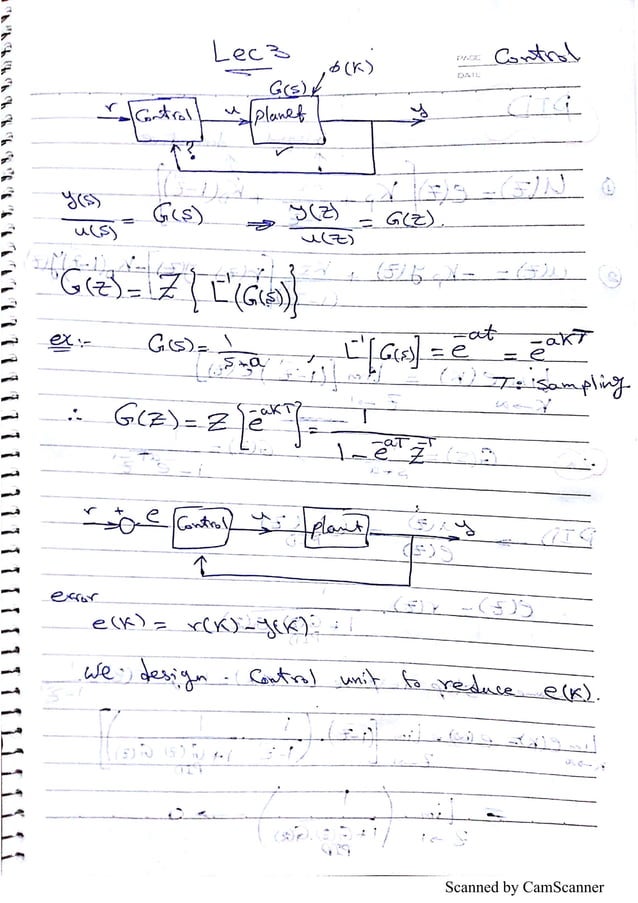 Lec 3
PAGE Control
DATE
ϕ(K)
G(s)
r Control u planet y
?
y(s)/u(s) = G(s) ⇒ y(Z)/u(Z) = G(Z).
G(Z) = Z { L⁻¹(G(s)) }
ex:- G(s) = 1/(s+a) , L⁻¹[G(s)] = e^-at = e^-aKT
T: Sampling
∴ G(Z) = Z [e^-aKT] = 1/(1 - e^-aT Z^-1)
r + e Control u plant y
error
e(K) = r(K) - y(K).
We design Control unit to reduce e(K).
Scanned by CamScanner